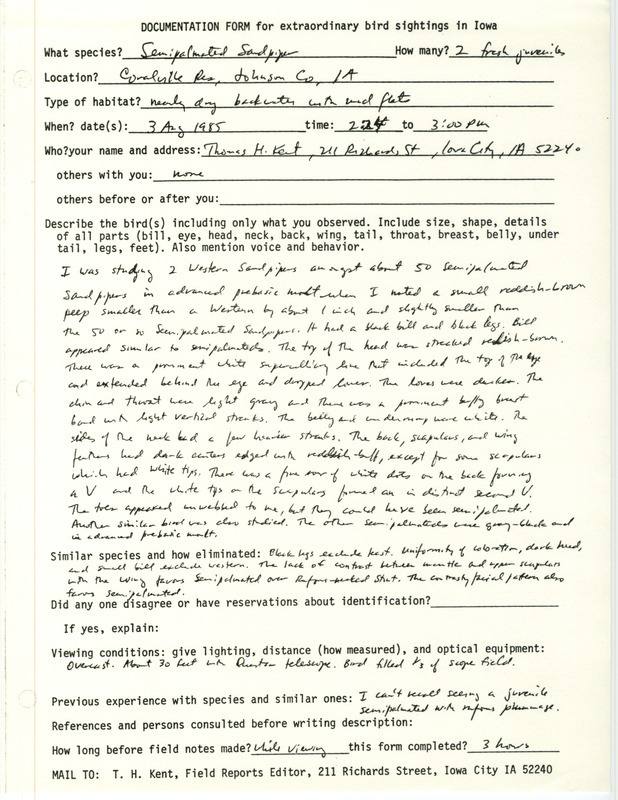 DOCUMENTATION FORM for extraordinary bird sightings in Iowa
What species? Semipalmated Sandpiper How many? 2 fresh juveniles
Location? Coralville Res, Johnson Co, IA
Type of habitat? nearly dry backwater with mud flats
When? date(s): 3 Aug 1985 time: to 3:00 PM
Who?your name and address: Thomas H. Kent, 211 Richards St, Iowa City, IA 52240
others with you: none
others before or after you:
Describe the bird(s) including only what you observed. Include size, shape, details
of all parts (bill, eye, head, neck, back, wing, tail, throat, breast, belly, under
tail, legs, feet). Also mention voice and behavior.
I was studying 2 Western Sandpipers amongst about 50 Semipalmated
Sandpipers in advanced prebasic moult when I noted a small reddish-brown
peep smaller than a Western by about 1 inch and slightly smaller than
the 50 or so Semipalmated Sandpipers. It had a black bill and black legs. Bill
appeared similar to semipalmateds. The top of the head was streaked reddish-brown.
There was a prominent white superciliary line that included the top of the eye
and extended behind the eye and dropped lower. The lores were darker. The
chin and throat were light gray and there was a prominent buffy breast
band with light vertical streaks. The belly and underneath were white. The
sides of the neck had a few heavier streaks. The back, scapulars, and wing
feathers had dark centers edged with reddish-buff, except for some scapulars
which had white tips. There was a fine row of white dots on the back forming
a V and the white tips on the scapulars formed an indistinct second V.
The toes appeared unwebbed to me, but they could have been semipalmated.
Another similar bird was also studied. The other semipalmateds were gray-black and
in advanced prebasic moult.
Similar species and how eliminated: Black legs exclude Least. Uniformity of coloration, dark head,
and small bill exclude western. The lack of contrast between mantle and upper scapulars
with the wing favors Semipalmated over Rufous-necked Stint. The contrasty facial pattern also
favors semipalmated.
Did any one disagree or have reservations about identification?
If yes, explain:
Viewing conditions: give lighting, distance (how measured), and optical equipment:
Overcast. About 30 feet with Questar telescope. Bird filled 1/3 of scope field.
Previous experience with species and similar ones: I can't recall seeing a juvenile
semipalmated with rufous plummage.
References and persons consulted before writing description:
How long before field notes made? while viewing this form completed? 3 hours
MAIL TO: T. H. Kent, Field Reports Editor, 211 Richards Street, Iowa City IA 52240